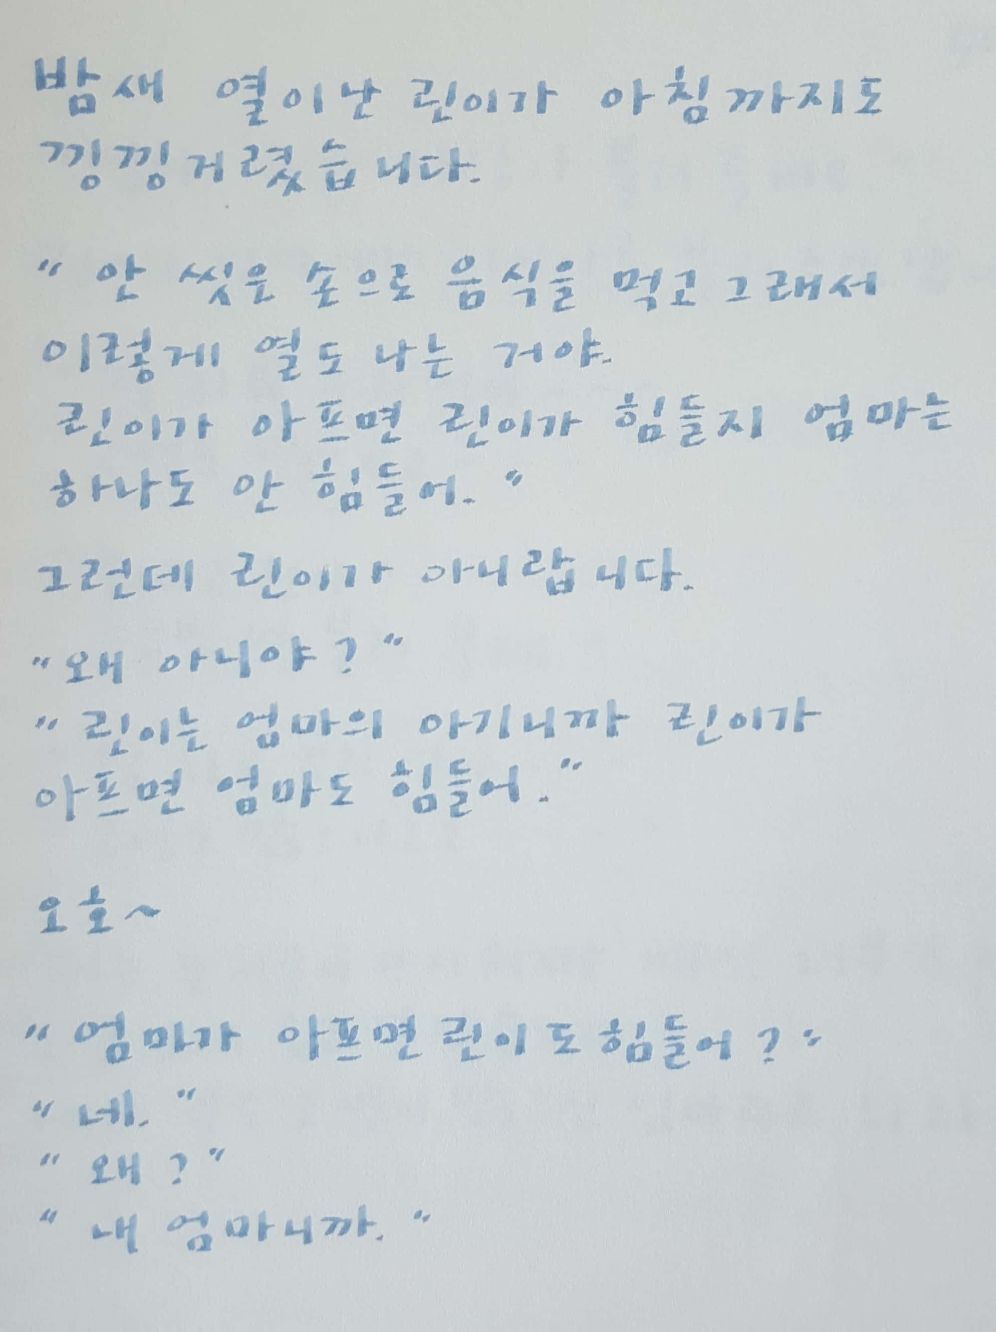 밤새 열이난 린이가 아침까지도
낑낑거렸습니다.
"안 씻은 손으로 음식을 먹고 그래서
이렇게 열도 나는 거야.
린이가 아프면 린이가 힘들지 엄마는
하나도 안 힘들어."
그런데 린이가 아니랍니다.
"왜 아니야?"
"린이는 엄마의 아기니까 린이가
아프면 엄마도 힘들어."
오호~
"엄마가 아프면 린이도 힘들어?"
"네."
"왜?"
"내 엄마니까."